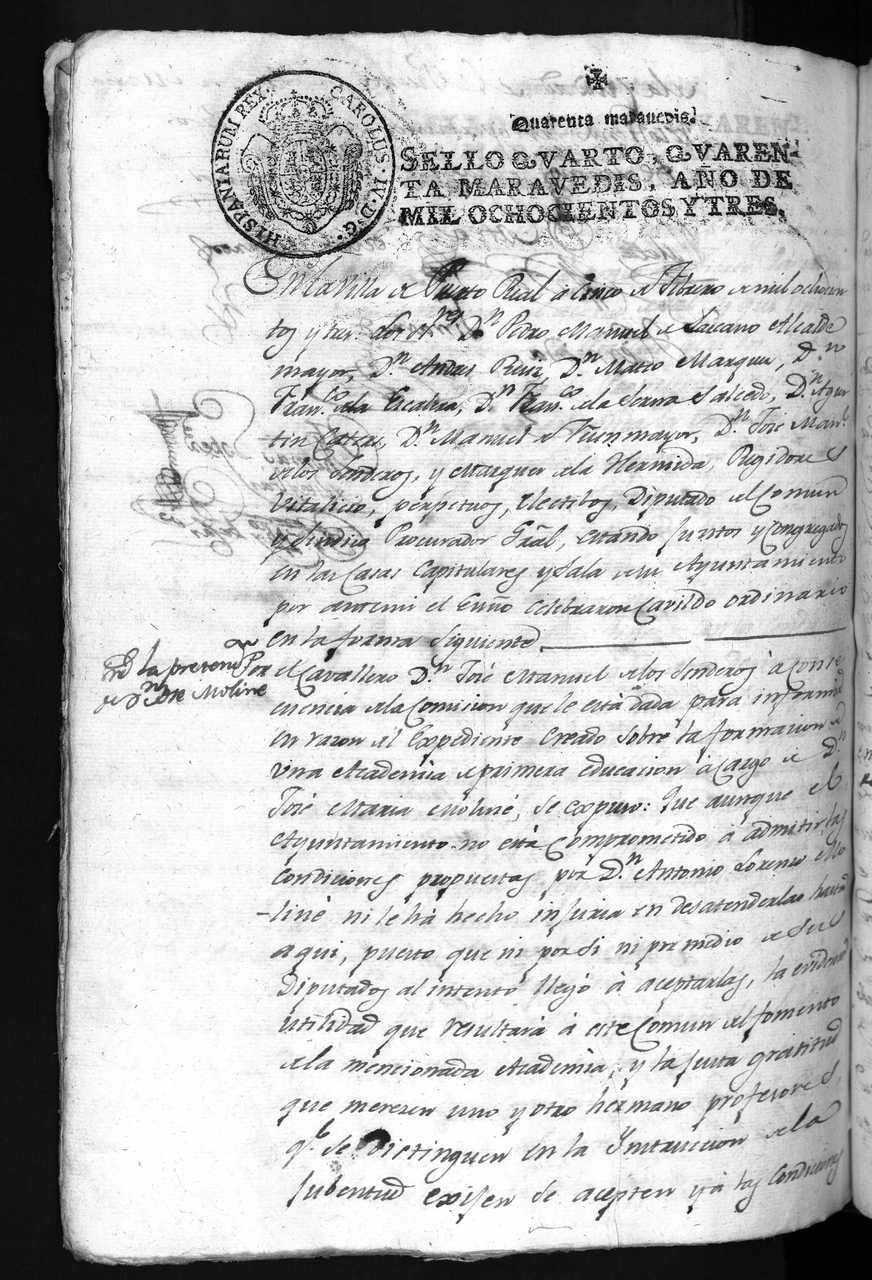 HISPANIARUM REX. CAROLUS. IV. D. G.
Quarenta maravedis.
SELLO QVARTO, QVAREN-
TA MARAVEDIS, AÑO DE
MIL OCHOCIENTOS Y TRES.
En la Villa de Puerto Real à cinco de Febrero de mil ochocien
tos y tres. Los Sres Dn Pedro Manuel de Alcalde
mayor, Dn Andres Ruiz, Dn Mateo Marquez, Dn
Franco de la Escalera, Dn Franco de la Serna Salcedo, Dn Agus
tin Dn Manuel de Fuenmayor, Dn José Manl
de los Senderos, y Marques de la Hermida, Regidores
Vitalicio, perpetuos, Electibos, Diputado del Comun
y Sindico Procurador Gral, estando juntos y Congregados
en las Casas Capitulares y Sala de su Ayuntamiento
por ante mi el Essno Celebraron Cavildo ordinario
en la forma siguiente
la pretenon
de Dn José Moliné
Por el Cavallero Dn José Manuel de los Senderos à conse
cuencia de la Comision que le está dada para informar
en razon del Expediente creado sobre la formacion de
una Academia de primera educacion à cargo de Dn
José Maria Moliné, se expuso: Que aunque el
Ayuntamiento no está comprometido à admitir las
Condiciones propuestas por Dn Antonio Lorenzo Mo
-liné ni le há hecho injuria en desatenderlas hasta
aqui, puesto que ni por si ni por medio de sus
Diputados al intento llegó à aceptarlas, la evidente
utilidad que resultaria à este Comun del fomento
de la mencionada Academia, y la justa gratitud
que merezen uno y otro hermano profesores,
qe se distinguen en la Instruccion de la
Jubentud exijen se acepten ya las Condiciones